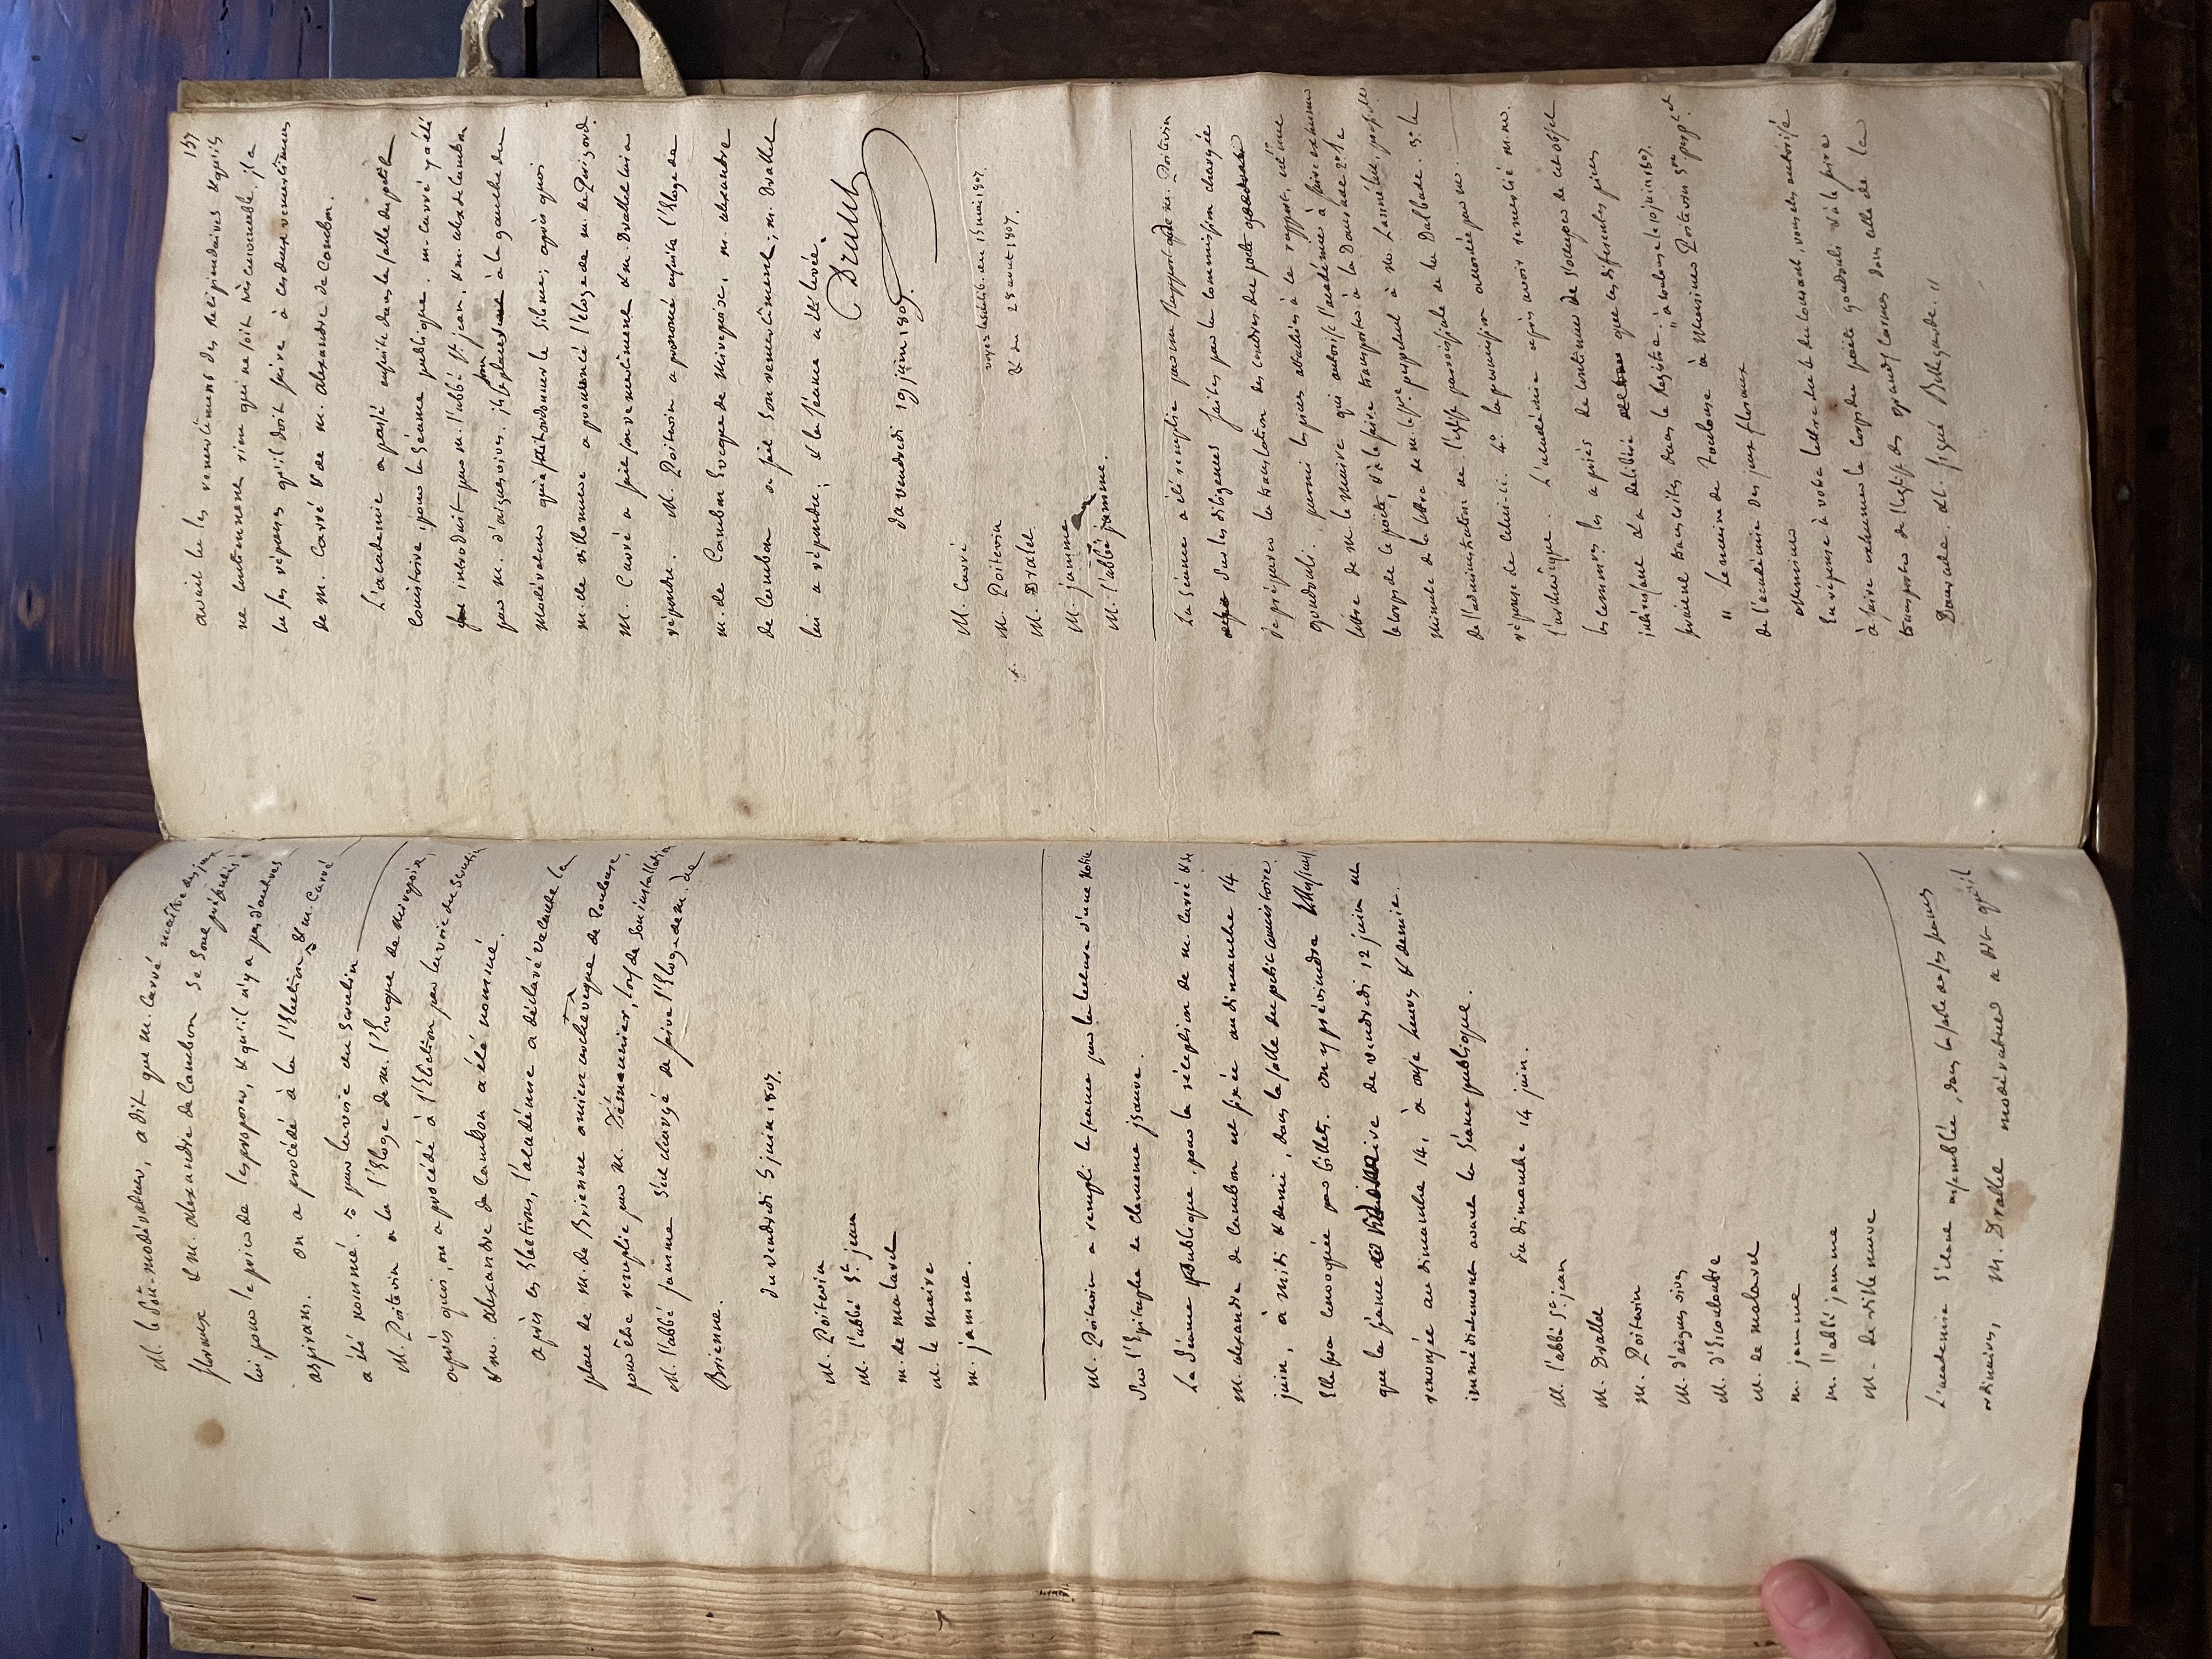 M. le sou-modérateur, a dit que M. Carré maître des jeux
floraux & M. alexandre de Cambon se sont présentés
lui, pour le prier de les proposer, & qu'il n'y a pas d'autres
aspirans. on a procédé à l'Election & M. Carré
a été nommé par la voie du scrutin
M. Poitevin a lu l'Eloge de M. l'Evêque de Mirepoix,
après quoi, on a procédé à l'Election par la voie du scrutin
& M. alexandre de Cambon a été nommé.
après ces Elections, l'académie a déclaré vacante la
place de M. de Brienne ancien archevêque de Toulouse,
pour être remplie par M. Désmenier, lors de son installation
M. l'abbé jamme s'est chargé de faire l'Eloge de M. de
Brienne.
du vendredi 5 juin 1807.
M. Poitevin
M. l'abbé St. jean
M. de malaret
M. le maire
M. jamme.
M. Poitevin a rempli la séance par la lecture d'une Notice
sur l'Epitaphe de clemence isaure.
La séance publique pour la réception de M. Carré & de
M. alexandre de Cambon est fixée au dimanche 14
juin, à midi & demie, dans la salle du petit consistoire.
Elle sera convoquée par billets. on y préviendra
que la séance de vendredi 12 juin est
renvoyée au dimanche 14, à onze heures & demie,
immédiatement avant la séance publique.
du dimanche 14 juin.
M. l'abbé St. jean
M. Dralet
M. Poitevin
M. d'aiguesvives
M. d'Escouloubre
M. de malaret
M. jamme
M. l'abbé jamme
M. de villeneuve
L'académie s'étant assemblée, dans la salle de ses séances
ordinaires, M. Dralet modérateur a dit qu'il
157
avait lu les remercimens des Récipiendaires & qu'ils
ne contiennent rien qui ne soit très convenable. il a
lu les réponses qu'il doit faire à ces deux remercimens
de M. Carré & de M. alexandre de Cambon.
L'académie a passé ensuite dans la salle du petit
Consistoire, pour la séance publique. M. Carré y a été
introduit par M. l'abbé St. jean, & M. alex. de Cambon
par M. d'aiguesvives. ils à la gauche du
modérateur qui a fait ordonner le silence; après quoi
M. de villeneuve a prononcé l'éloge de M. de Périgord.
M. Carré a fait son remercîment & M. Dralet lui a
répondu. M. Poitevin a prononcé ensuite l'Eloge de
M. de Cambon Evêque de Mirepoix, M. alexandre
de Cambon a fait son remercîment; M. Dralet
lui a répondu; & la séance a été levée.
Dralet
du vendredi 19 juin 1807.
voyez la délib. du 15 mai 1807.
& du 28 aout 1807.
M. Carré
M. Poitevin
M. Dralet
M. jamme
M. l'abbé jamme.
La séance a été remplie par un Rapport de M. Poitevin
sur les diligences faites par la commission chargée
de préparer la translation des cendres du poète
goudouli. parmi les pièces attachées à ce rapport, est une
lettre de M. le Maire qui autorise l'académie à faire exhumer
le corps du poète, & à le faire transporter à la Daurade 2°. la
minute de la lettre de M. à M. 3°. la
de l'administration de l'église paroissiale de la Dalbade.
réponse de celui-ci. 4°. la permission accordée par M.
l'archevêque. L'académie après avoir remercié MM.
les commres. les a priés de continuer de s'occuper de cet objet
intéressant & a délibéré que les différentes pièces
seraient transcrites dans le Registre. " à toulouse le 10 juin 1807.
" Le maire de Toulouse à Messieurs Poitevin
de l'académie des jeux floraux
Messieurs
En réponse à votre lettre du courant, vous êtes autorisés
à faire exhumer le corps du poète goudouli & à le faire
transporter de l'église des grands Carmes dans celle de la
Daurade. &c. signé Bellegarde. "